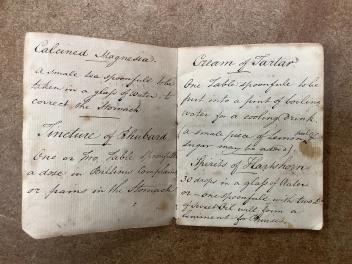 Calcined Magnesia.
a small tea spoonfull to be
taken in a glass of Water to
correct the Stomach
Tincture of Rhubarb
One or Two Table spoonfulls
a dose in Billious Complaints
or pains in the Stomach
Cream of Tartar
One Table spoonfull to be
put into a pint of boiling
water for a cooling drink
(a small piece of Lemon peel &
sugar may be added)
Spirits of Hartshorn
30 drops in a glass of Water
or one Spoonfull with two Do
of Sweet Oil will form a
liniment for Bruises